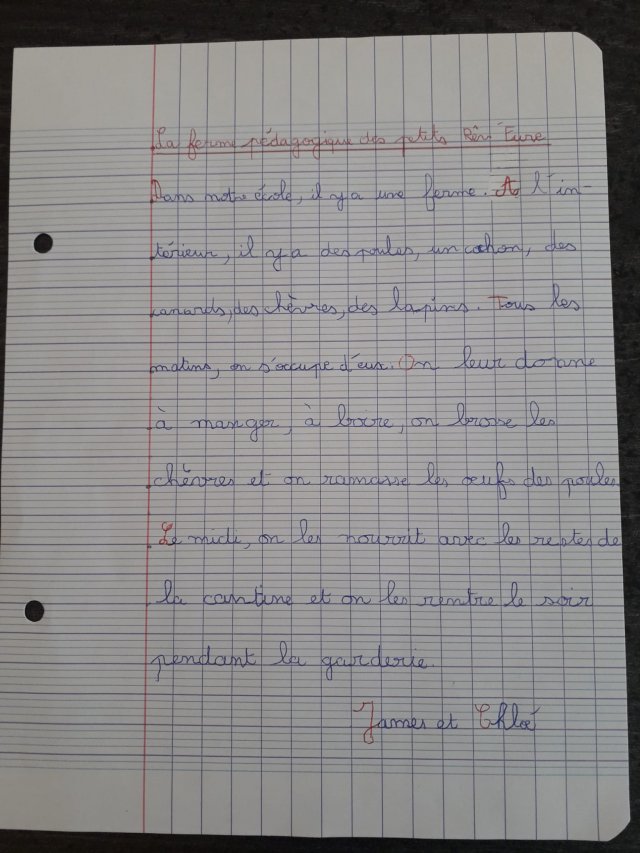 La ferme pédagogique des petits Rêv'Eure
Dans notre école, il y a une ferme. A l'in-
térieur, il y a des poules, un cochon, des
canards, des chèvres, des lapins. Tous les
matins, on s'occupe d'eux. On leur donne
à manger, à boire, on brosse les
chèvres et on ramasse les œufs des poules.
Le midi, on les nourrit avec les restes de
la cantine et on les rentre le soir
pendant la garderie.
James et Chloé